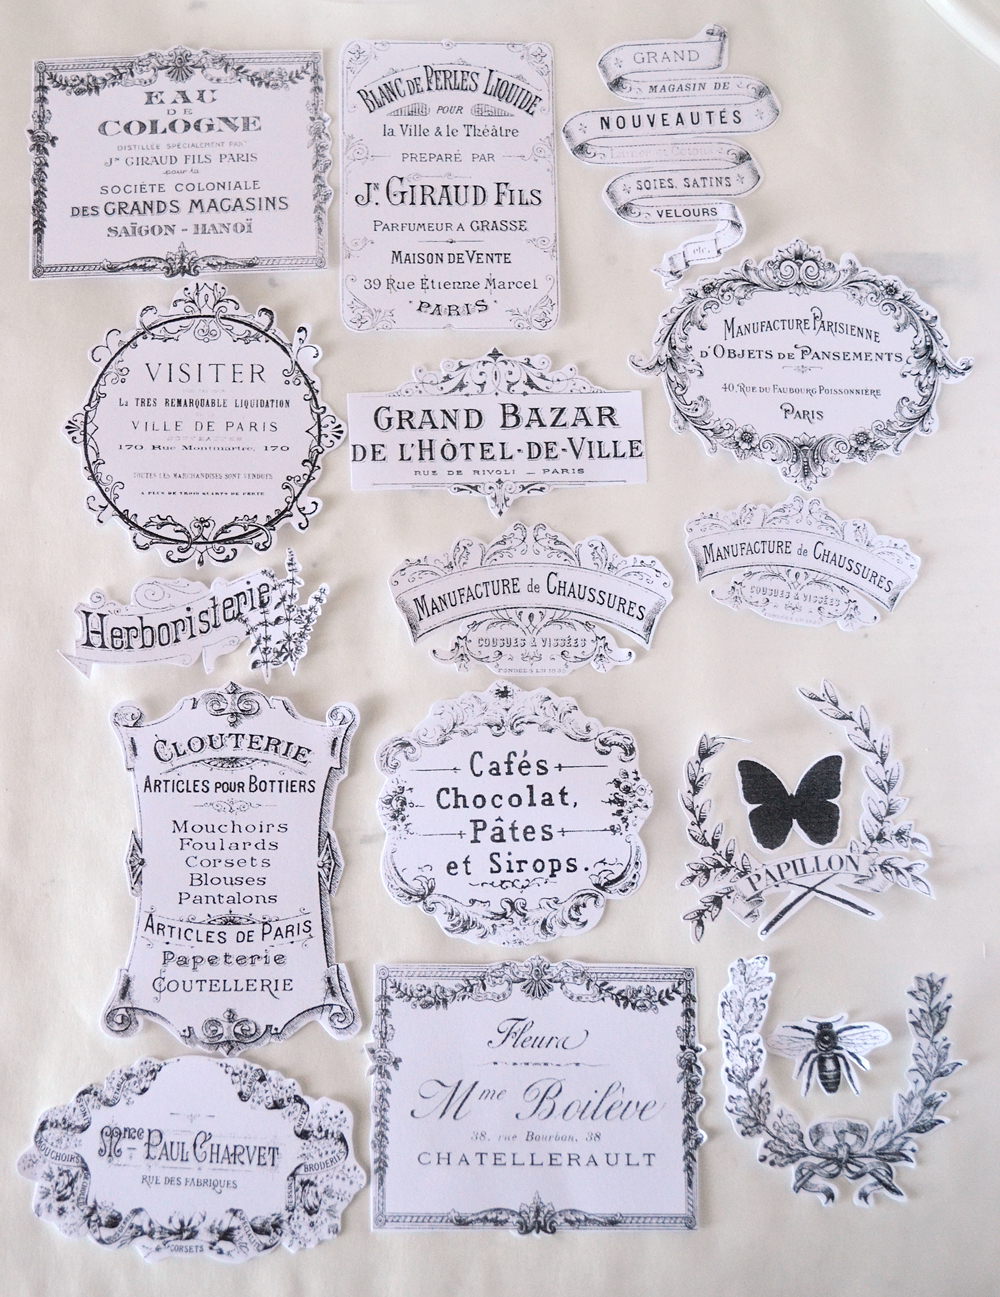 EAU
DE
COLOGNE
DISTILLÉE SPÉCIALEMENT PAR
Jⁿ GIRAUD FILS PARIS
pour la
SOCIÉTE COLONIALE
DES GRANDS MAGASINS
SAÏGON - HANOÏ
BLANC DE PERLES LIQUIDE
POUR
la Ville & le Théâtre
PREPARÉ PAR
Jⁿ. GIRAUD FILS
PARFUMEUR A GRASSE
MAISON DE VENTE
39 Rue Étienne Marcel
PARIS
GRAND
MAGASIN DE
NOUVEAUTÉS
SOIES, SATINS
VELOURS
etc.
VISITER
La TRES REMARQUABLE LIQUIDATION
VILLE DE PARIS
170 Rue Montmartre, 170
TOUTES LES MARCHANDISES SONT VENDUES
A PLUS DE TROIS QUARTS DE PERTE
GRAND BAZAR
DE L'HÔTEL-DE-VILLE
RUE DE RIVOLI — PARIS
MANUFACTURE PARISIENNE
D'OBJETS DE PANSEMENTS
40, RUE DU FAUBOURG POISSONNIÈRE
PARIS
Herboristerie
MANUFACTURE de CHAUSSURES
COUSUES & VISSÉES
MANUFACTURE de CHAUSSURES
COUSUES & VISSÉES
CLOUTERIE
ARTICLES POUR BOTTIERS
Mouchoirs
Foulards
Corsets
Blouses
Pantalons
ARTICLES DE PARIS
Papeterie
COUTELLERIE
Cafés
Chocolat,
Pâtes
et Sirops.
PAPILLON
Mⁿᶜᵉ PAUL CHARVET
RUE DES FABRIQUES
BRODERIES
CORSETS
Fleurs
Mᵐᵉ Boilève
38, rue Bourbon, 38
CHATELLERAULT